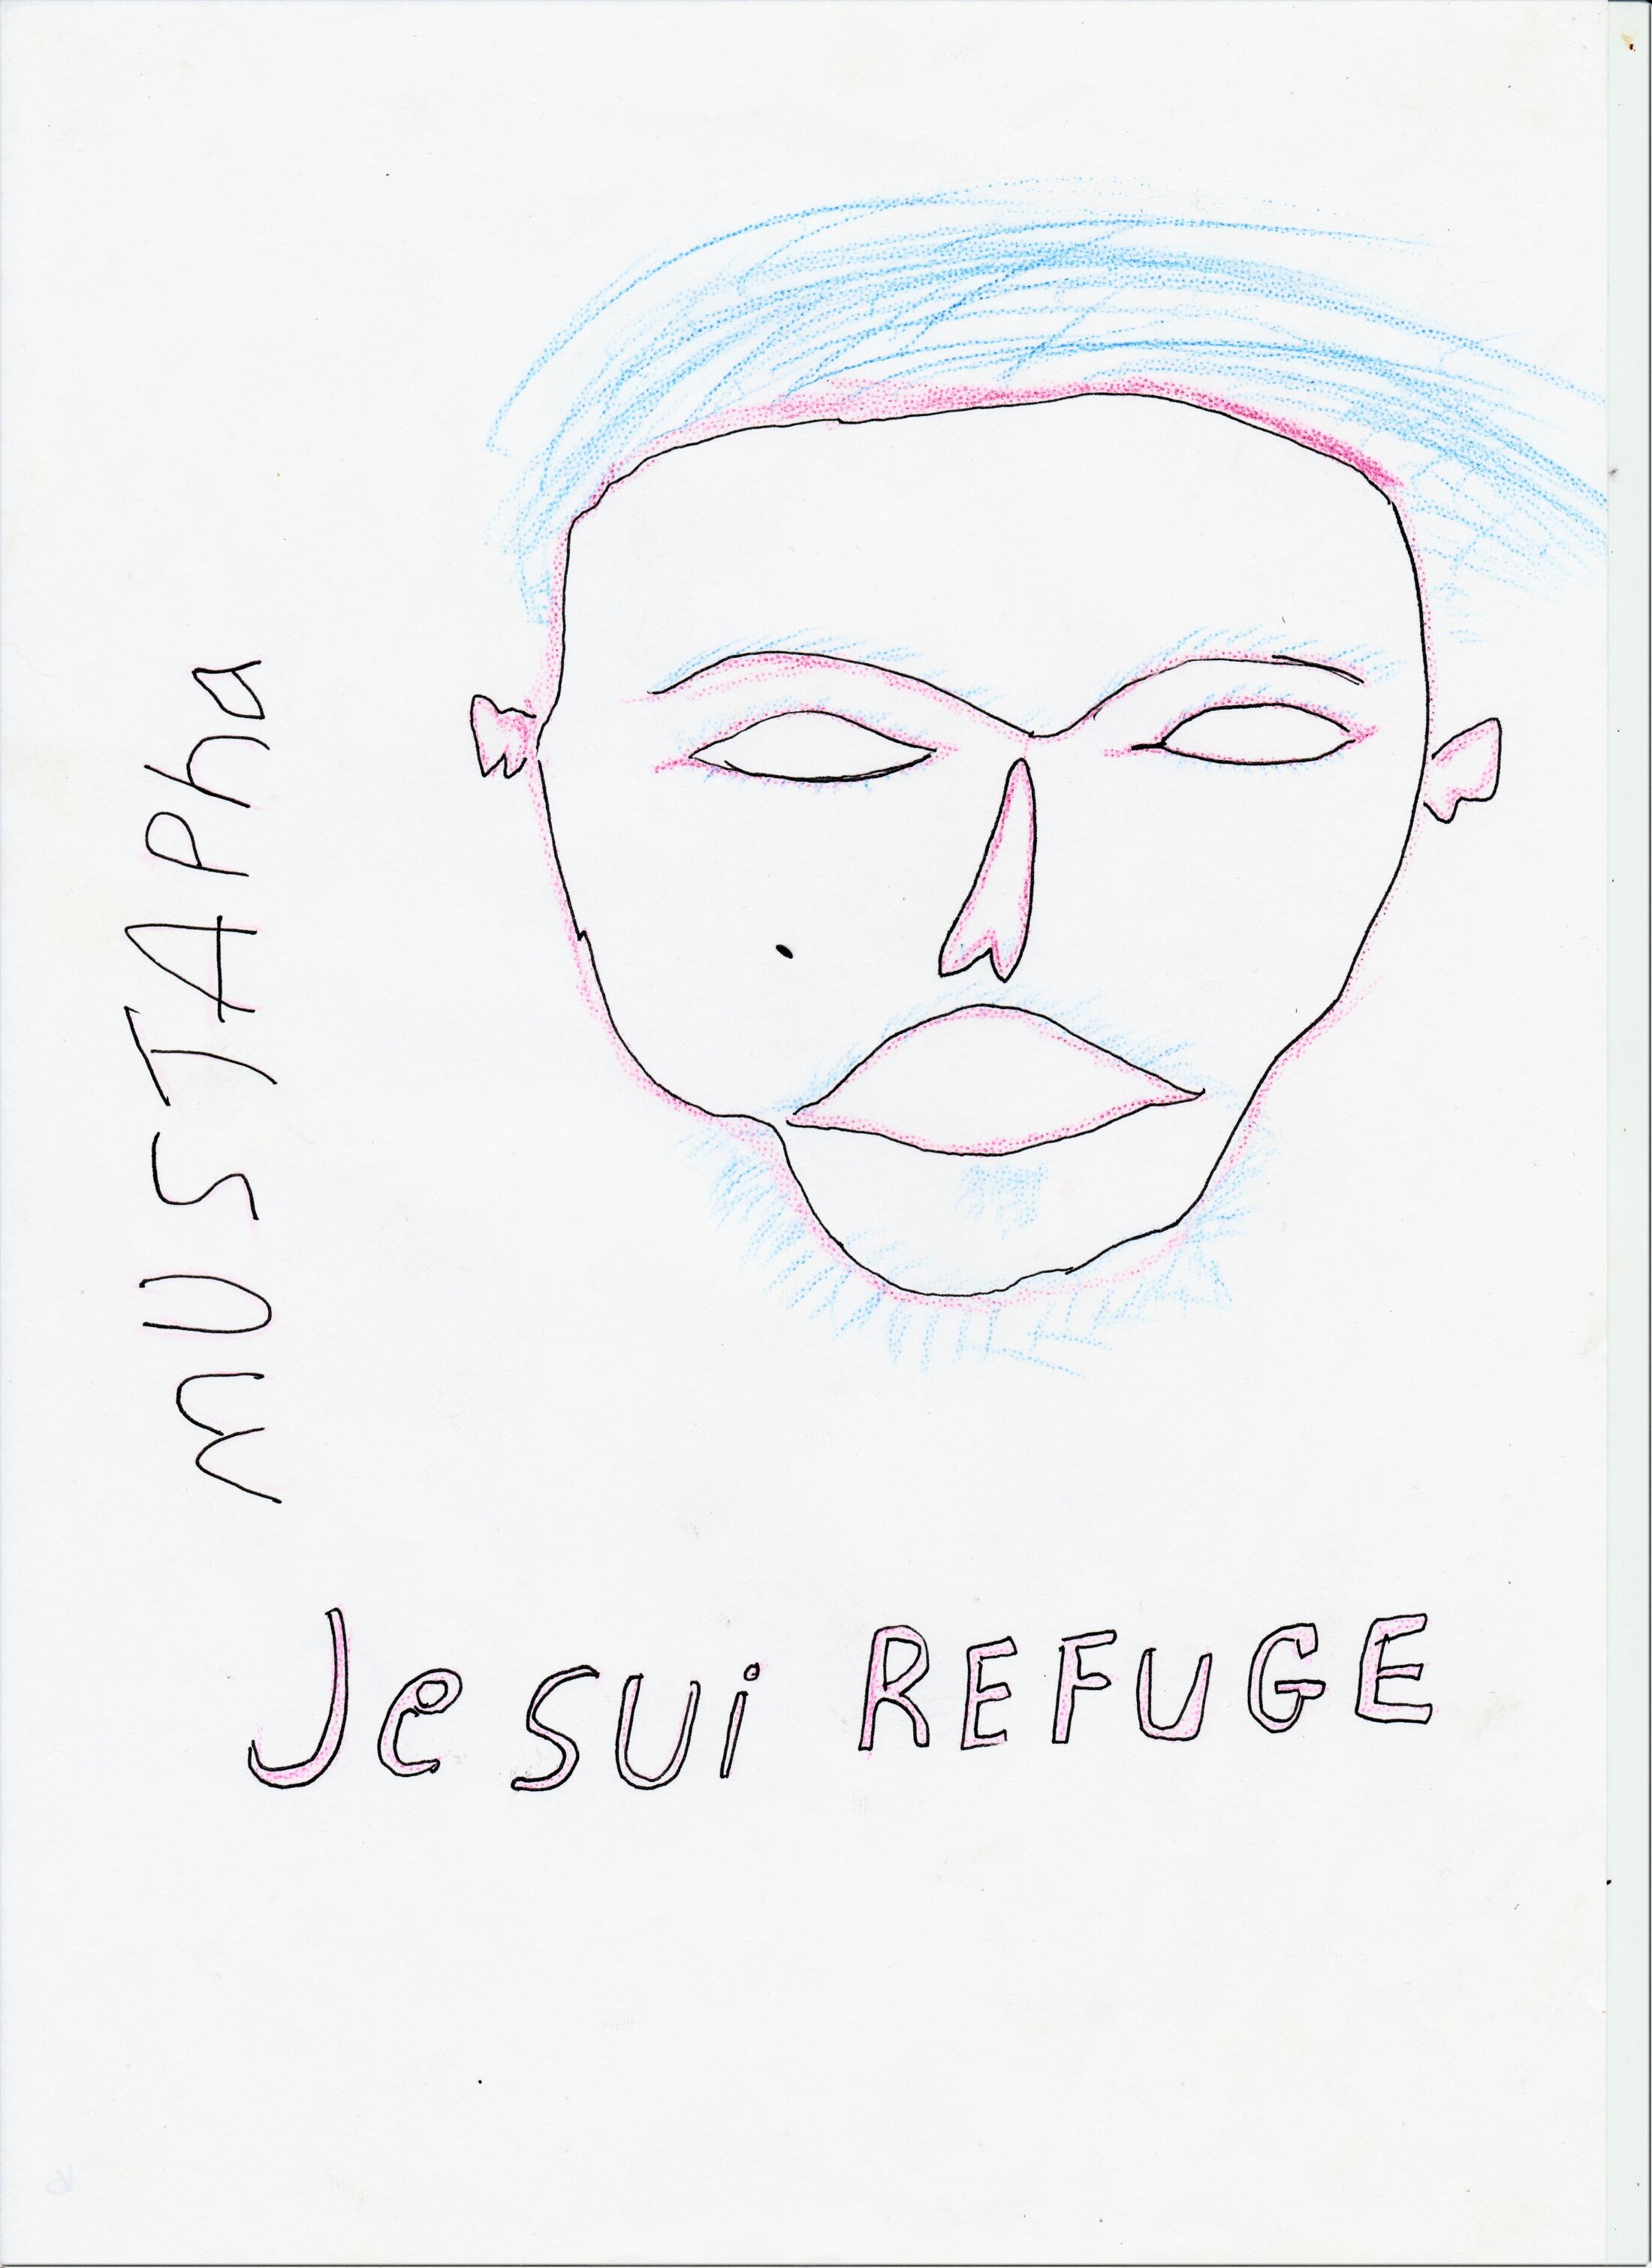 mUSTAPha
Je sui REFUGE